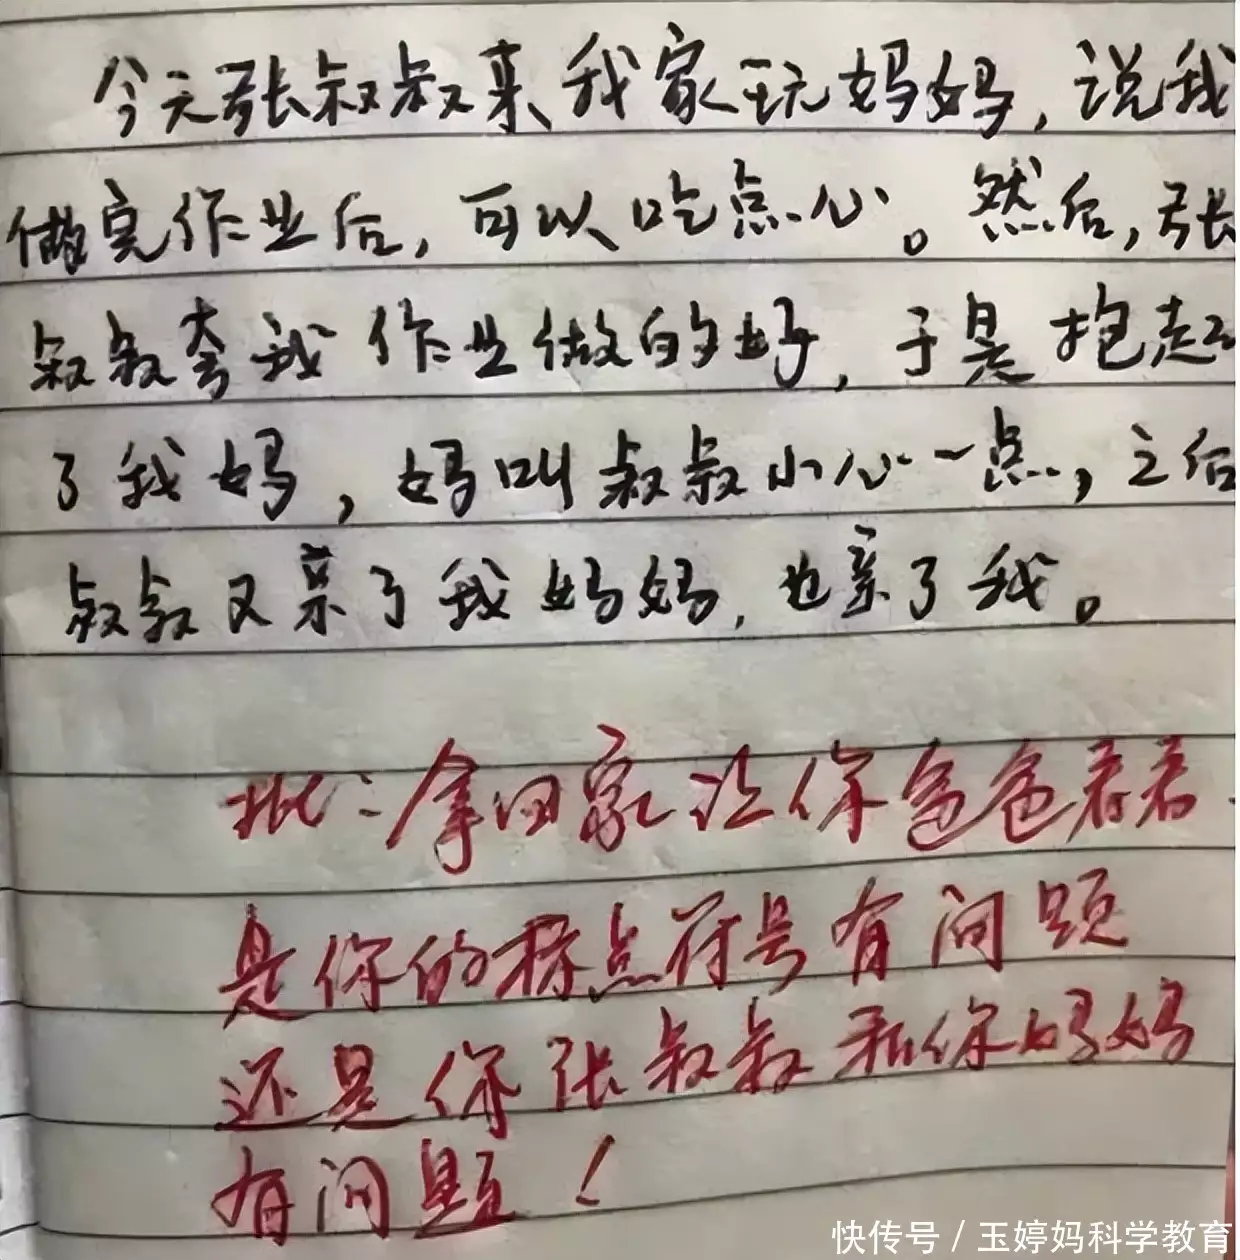 今天张叔叔来我家玩妈妈，说我
做完作业后，可以吃点心。然后，张
叔叔夸我作业做的好，于是抱起
了我妈，妈叫叔叔小心一点，之后
叔叔又亲了我妈妈，也亲了我。
批：拿回家让你爸爸看看
是你的标点符号有问题
还是你张叔叔和你妈妈
有问题！
快传号 / 玉婷妈科学教育